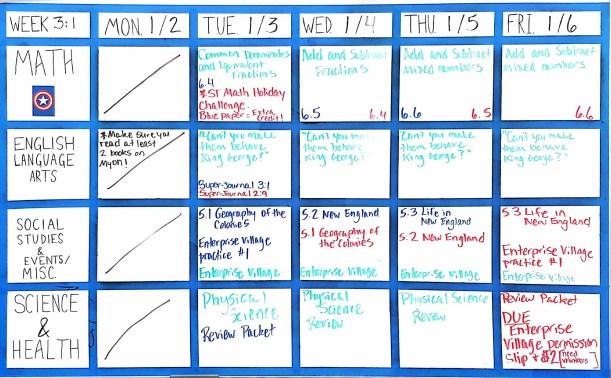 WEEK 3:1
MON. 1/2
TUE. 1/3
WED. 1/4
THU. 1/5
FRI. 1/6
MATH
Common Denominators
and Equivalent
Fractions
6.4
*ST Math Holiday
Challenge.
Blue paper = Extra
Credit!
Add and Subtract
Fractions
6.5 6.4
Add and Subtract
Mixed numbers
6.6 6.5
Add and Subtract
Mixed numbers
6.6
ENGLISH
LANGUAGE
ARTS
*Make sure you
read at least
2 books on
Myon!
"Can't you make
them behave
King George?"
Super-Journal 3:1
Super-Journal 2:9
"Can't you make
them behave
King George?
"Can't you make
them behave
King George?"
"Can't you make
them behave
King George?"
SOCIAL
STUDIES
&
EVENTS/
MISC.
5.1 Geography of the
Colonies
Enterprise Village
practice #1
Enterprise Village
5.2 New England
5.1 Geography of
the Colonies
Enterprise Village
5.3 Life in
New England
5.2 New England
Enterprise Village
5.3 Life in
New England
Enterprise Village
practice #1
Enterprise Village
SCIENCE
&
HEALTH
Physical
Science
Review Packet
Physical
Science
Review
Physical Science
Review
Review Packet
DUE
Enterprise
Village permission
Slip + $2